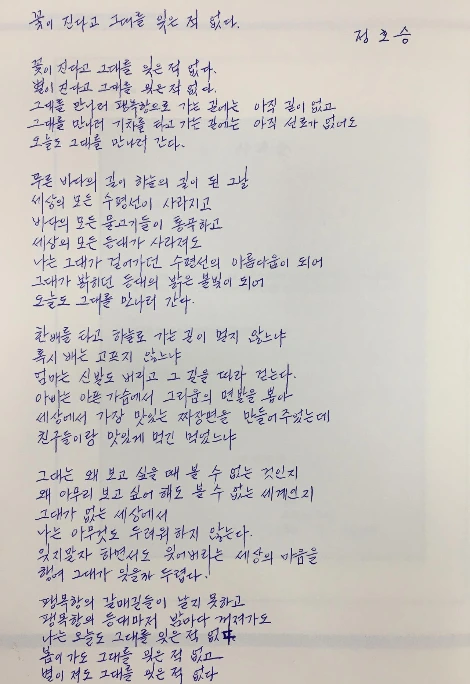 꽃이 진다고 그대를 잊은 적 없다.
정호승
꽃이 진다고 그대를 잊은 적 없다.
별이 진다고 그대를 잊은 적 없다.
그대를 만나러 팽목항으로 가는 길에는 아직 길이 없고
그대를 만나러 기차를 타고 가는 길에는 아직 선로가 없어도
오늘도 그대를 만나러 간다.
푸른 바다의 길이 하늘의 길이 된 그날
세상의 모든 수평선이 사라지고
바다의 모든 물고기들이 통곡하고
세상의 모든 등대가 사라져도
나는 그대가 걸어가던 수평선의 아름다움이 되어
그대가 밝히던 등대의 밝은 불빛이 되어
오늘도 그대를 만나러 간다.
한배를 타고 하늘로 가는 길이 멀지 않느냐
혹시 배는 고프지 않느냐
엄마는 신발도 버리고 그 길을 따라 걷는다.
아빠는 아픈 가슴에서 그리움의 면발을 뽑아
세상에서 가장 맛있는 짜장면을 만들어주었는데
친구들이랑 맛있게 먹긴 먹었느냐
그대는 왜 보고 싶을 때 볼 수 없는 것인지
왜 아무리 보고 싶어 해도 볼 수 없는 세계인지
그대가 없는 세상에서
나는 아무것도 두려워하지 않는다.
잊지말자 하면서도 잊어버리는 세상의 마음을
행여 그대가 잊을까 두렵다.
팽목항의 갈매기들이 날지 못하고
팽목항의 등대마저 밤마다 꺼져가도
나는 오늘도 그대를 잊은 적 없다
봄이 가도 그대를 잊은 적 없고
별이 져도 그대를 잊은 적 없다